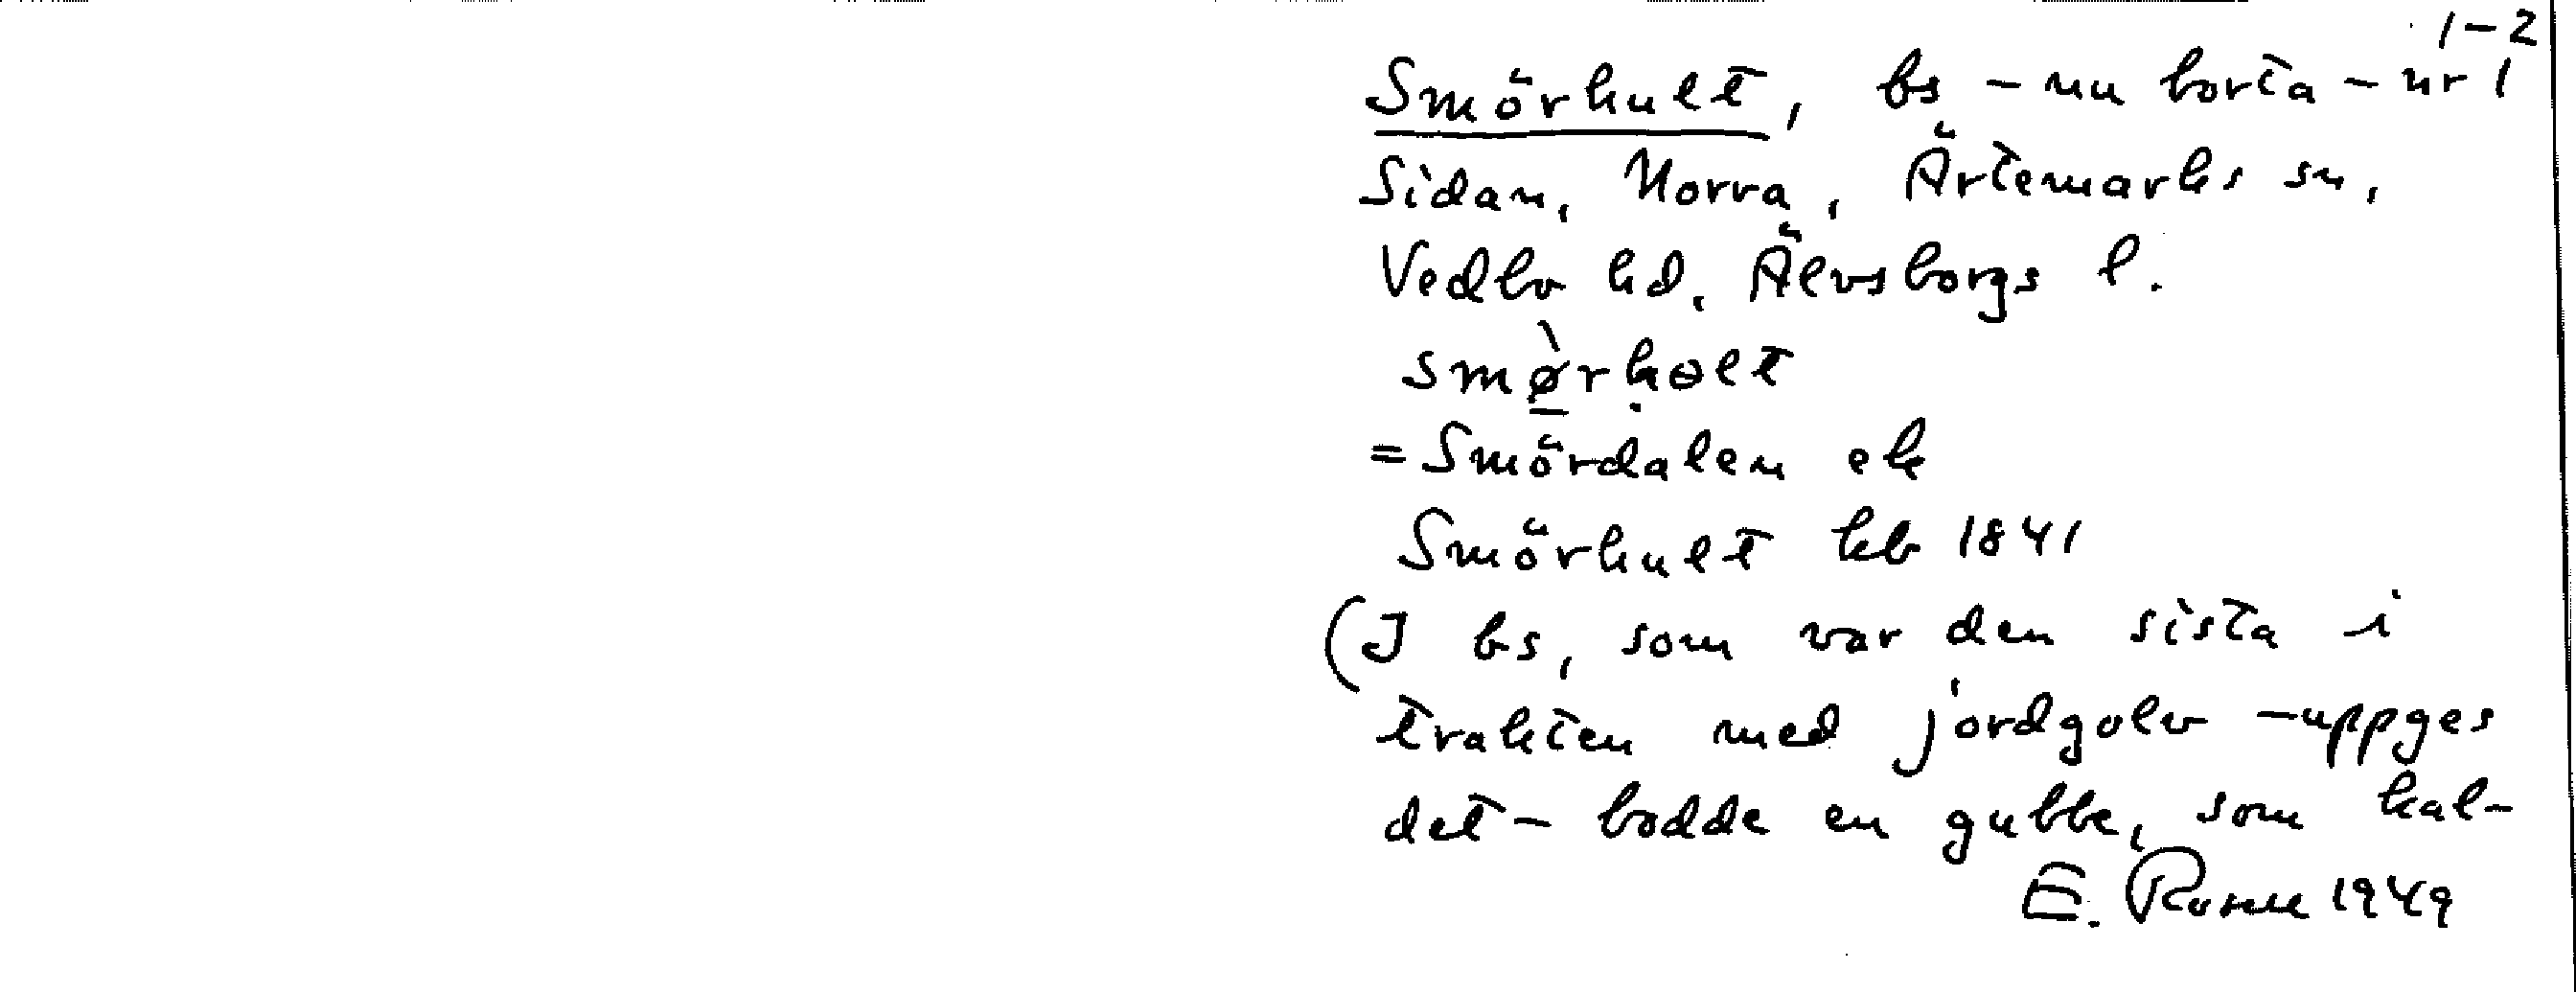 1-2
Smörhult, bs - nu borta - nr 1
Sidan, Norra, Ärtemarks sn,
Vedbo hd, Älvsborgs l.
smø̀rhɵlt
= Smördalen ek
Smörhult kb 1841
(I bs, som var den sista i
trakten med jordgolv - uppges
det - bodde en gubbe, som kal-
E. 1949